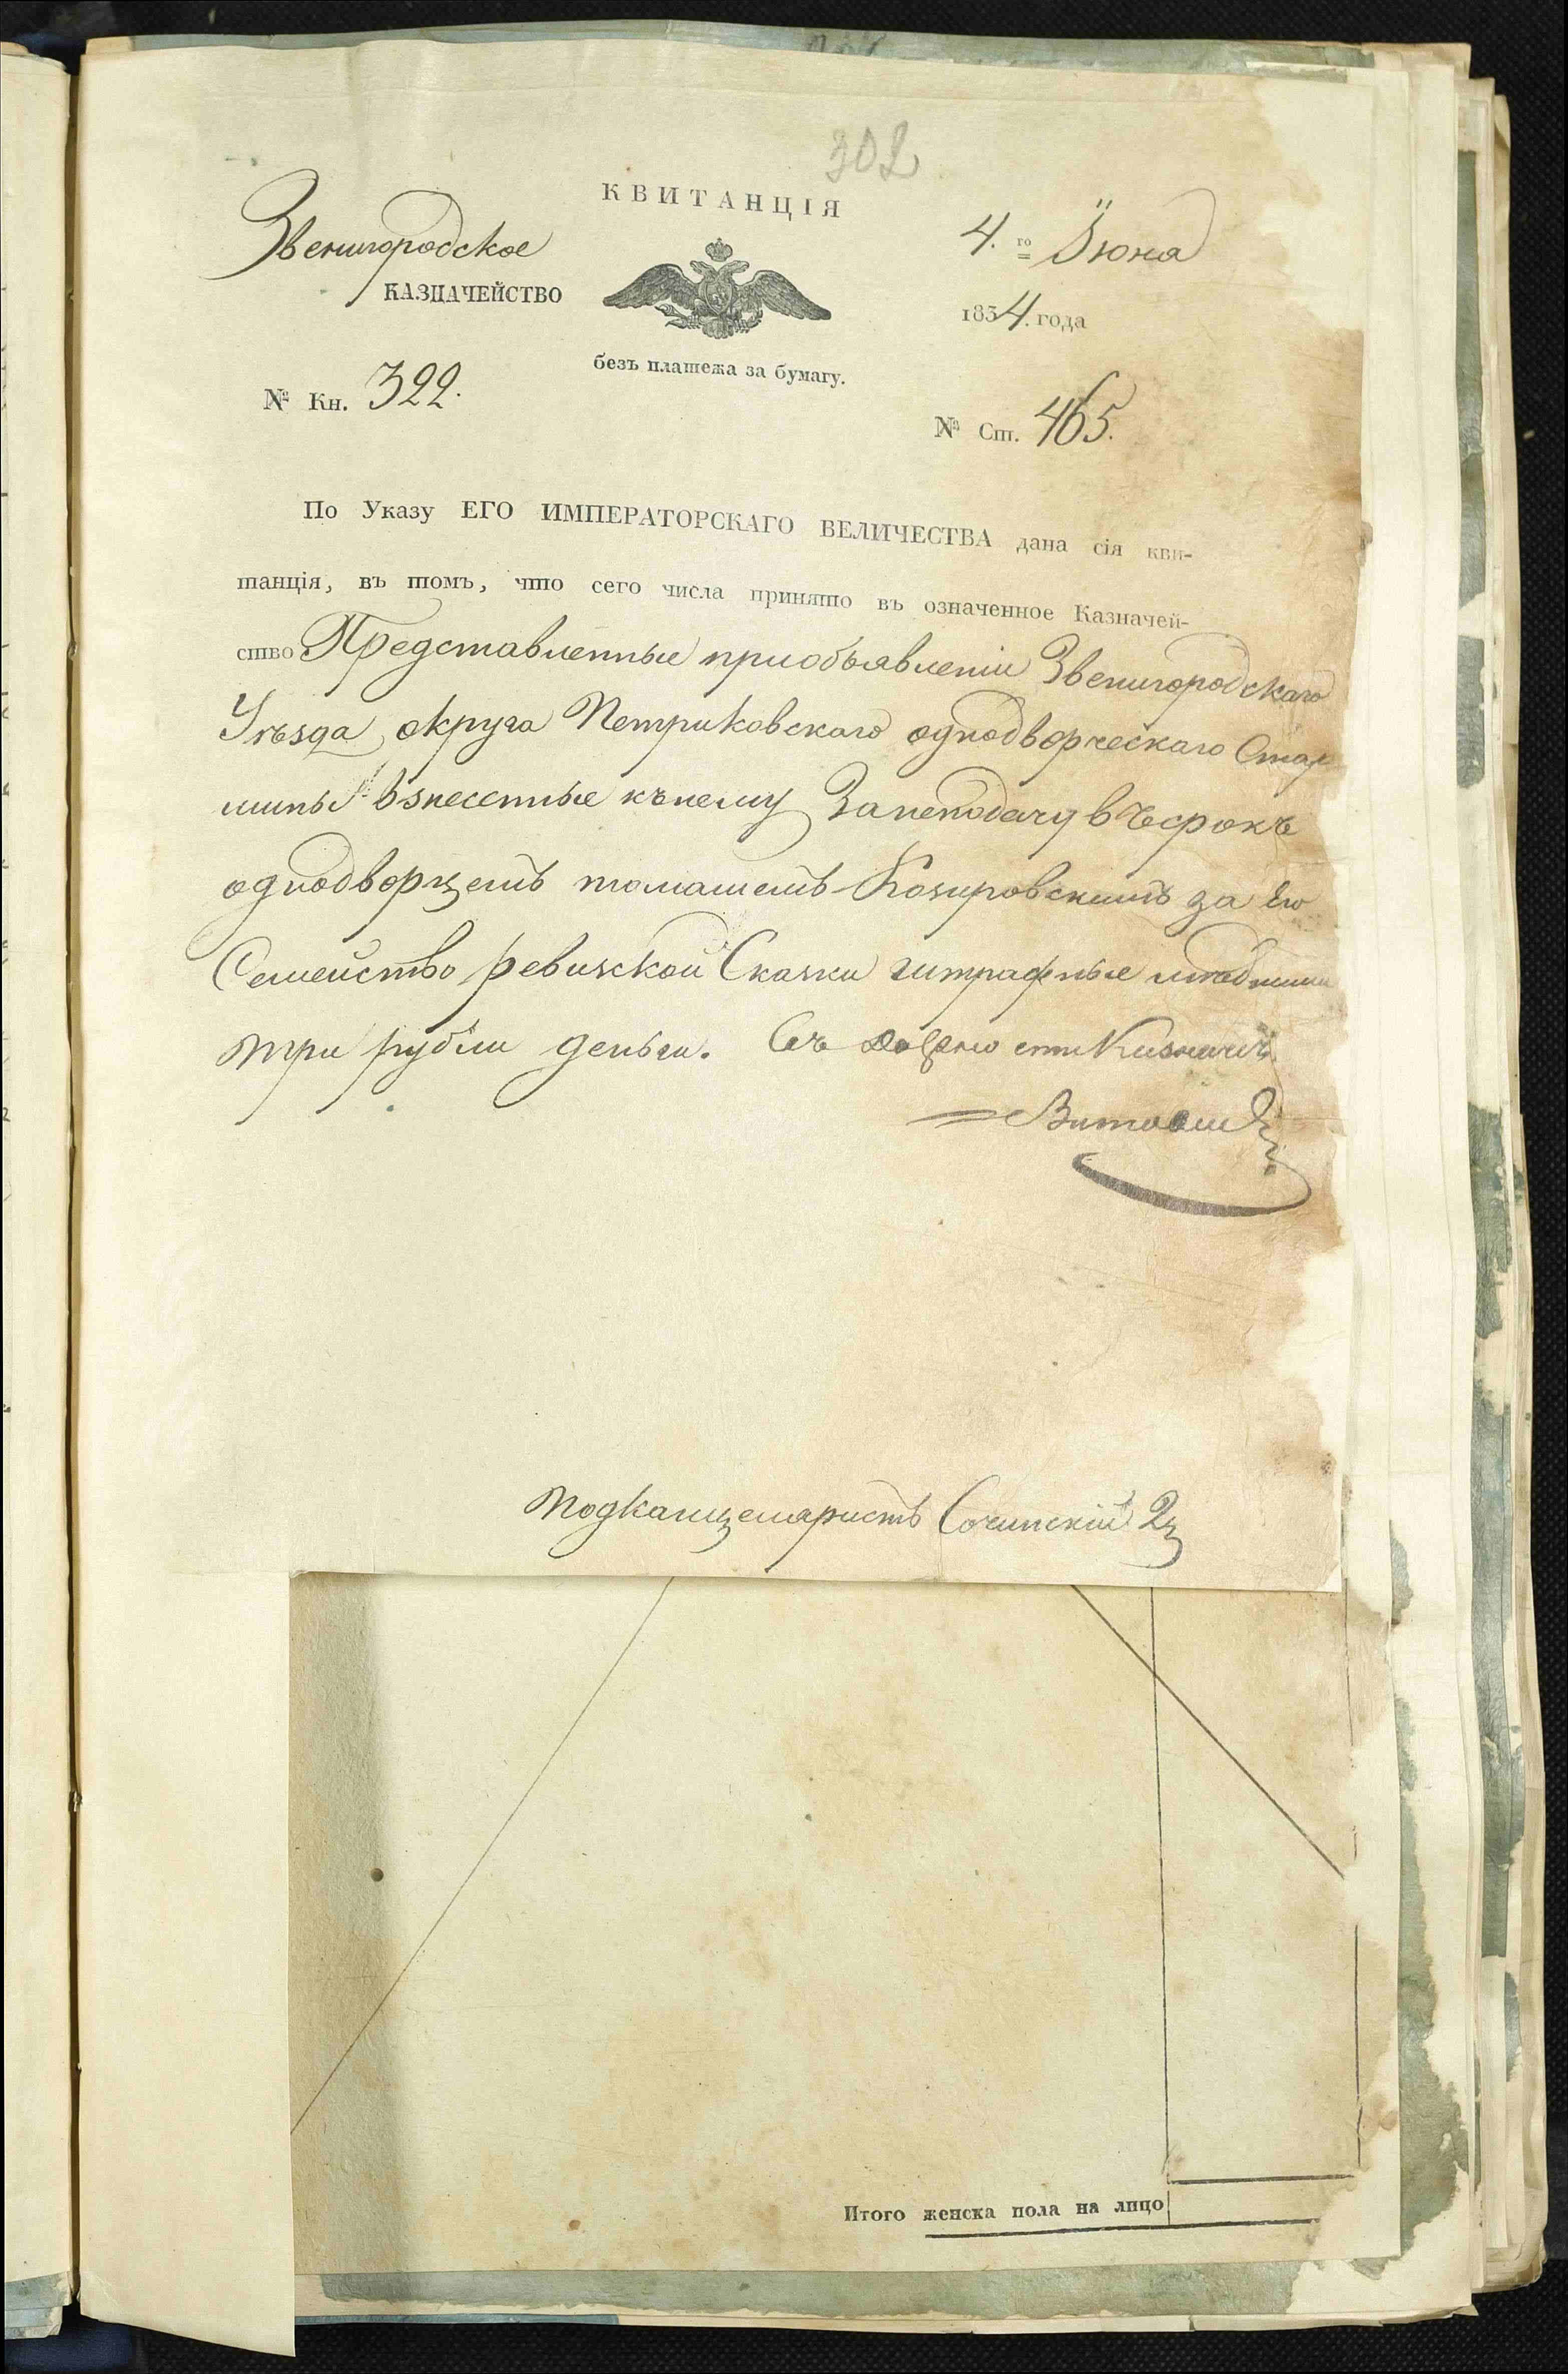 302
КВИТАНЦІЯ
Звенигородское
КАЗНАЧЕЙСТВО
4.го Іюна
1834. года
безъ платежа за бумагу.
№ Кн. 322.
№ Ст. 465.
По Указу ЕГО ИМПЕРАТОРСКАГО ВЕЛИЧЕСТВА дана сія кви-
танція, въ томъ, что сего числа принято въ означенное Казначей-
ство Представленные приобъявленіи Звенигородскаго
Уѣзда округа Петриковскаго однодворческаго Стар
шины взнесенные кънему Занеподачу въсрокъ
однодворцемъ томашемъ Козировскимъ за Его
Семейство ревизкой Сказки штрафные
три рубли деньги.
Подканцеляристъ Сочинскій
Итого женска пола на лицо